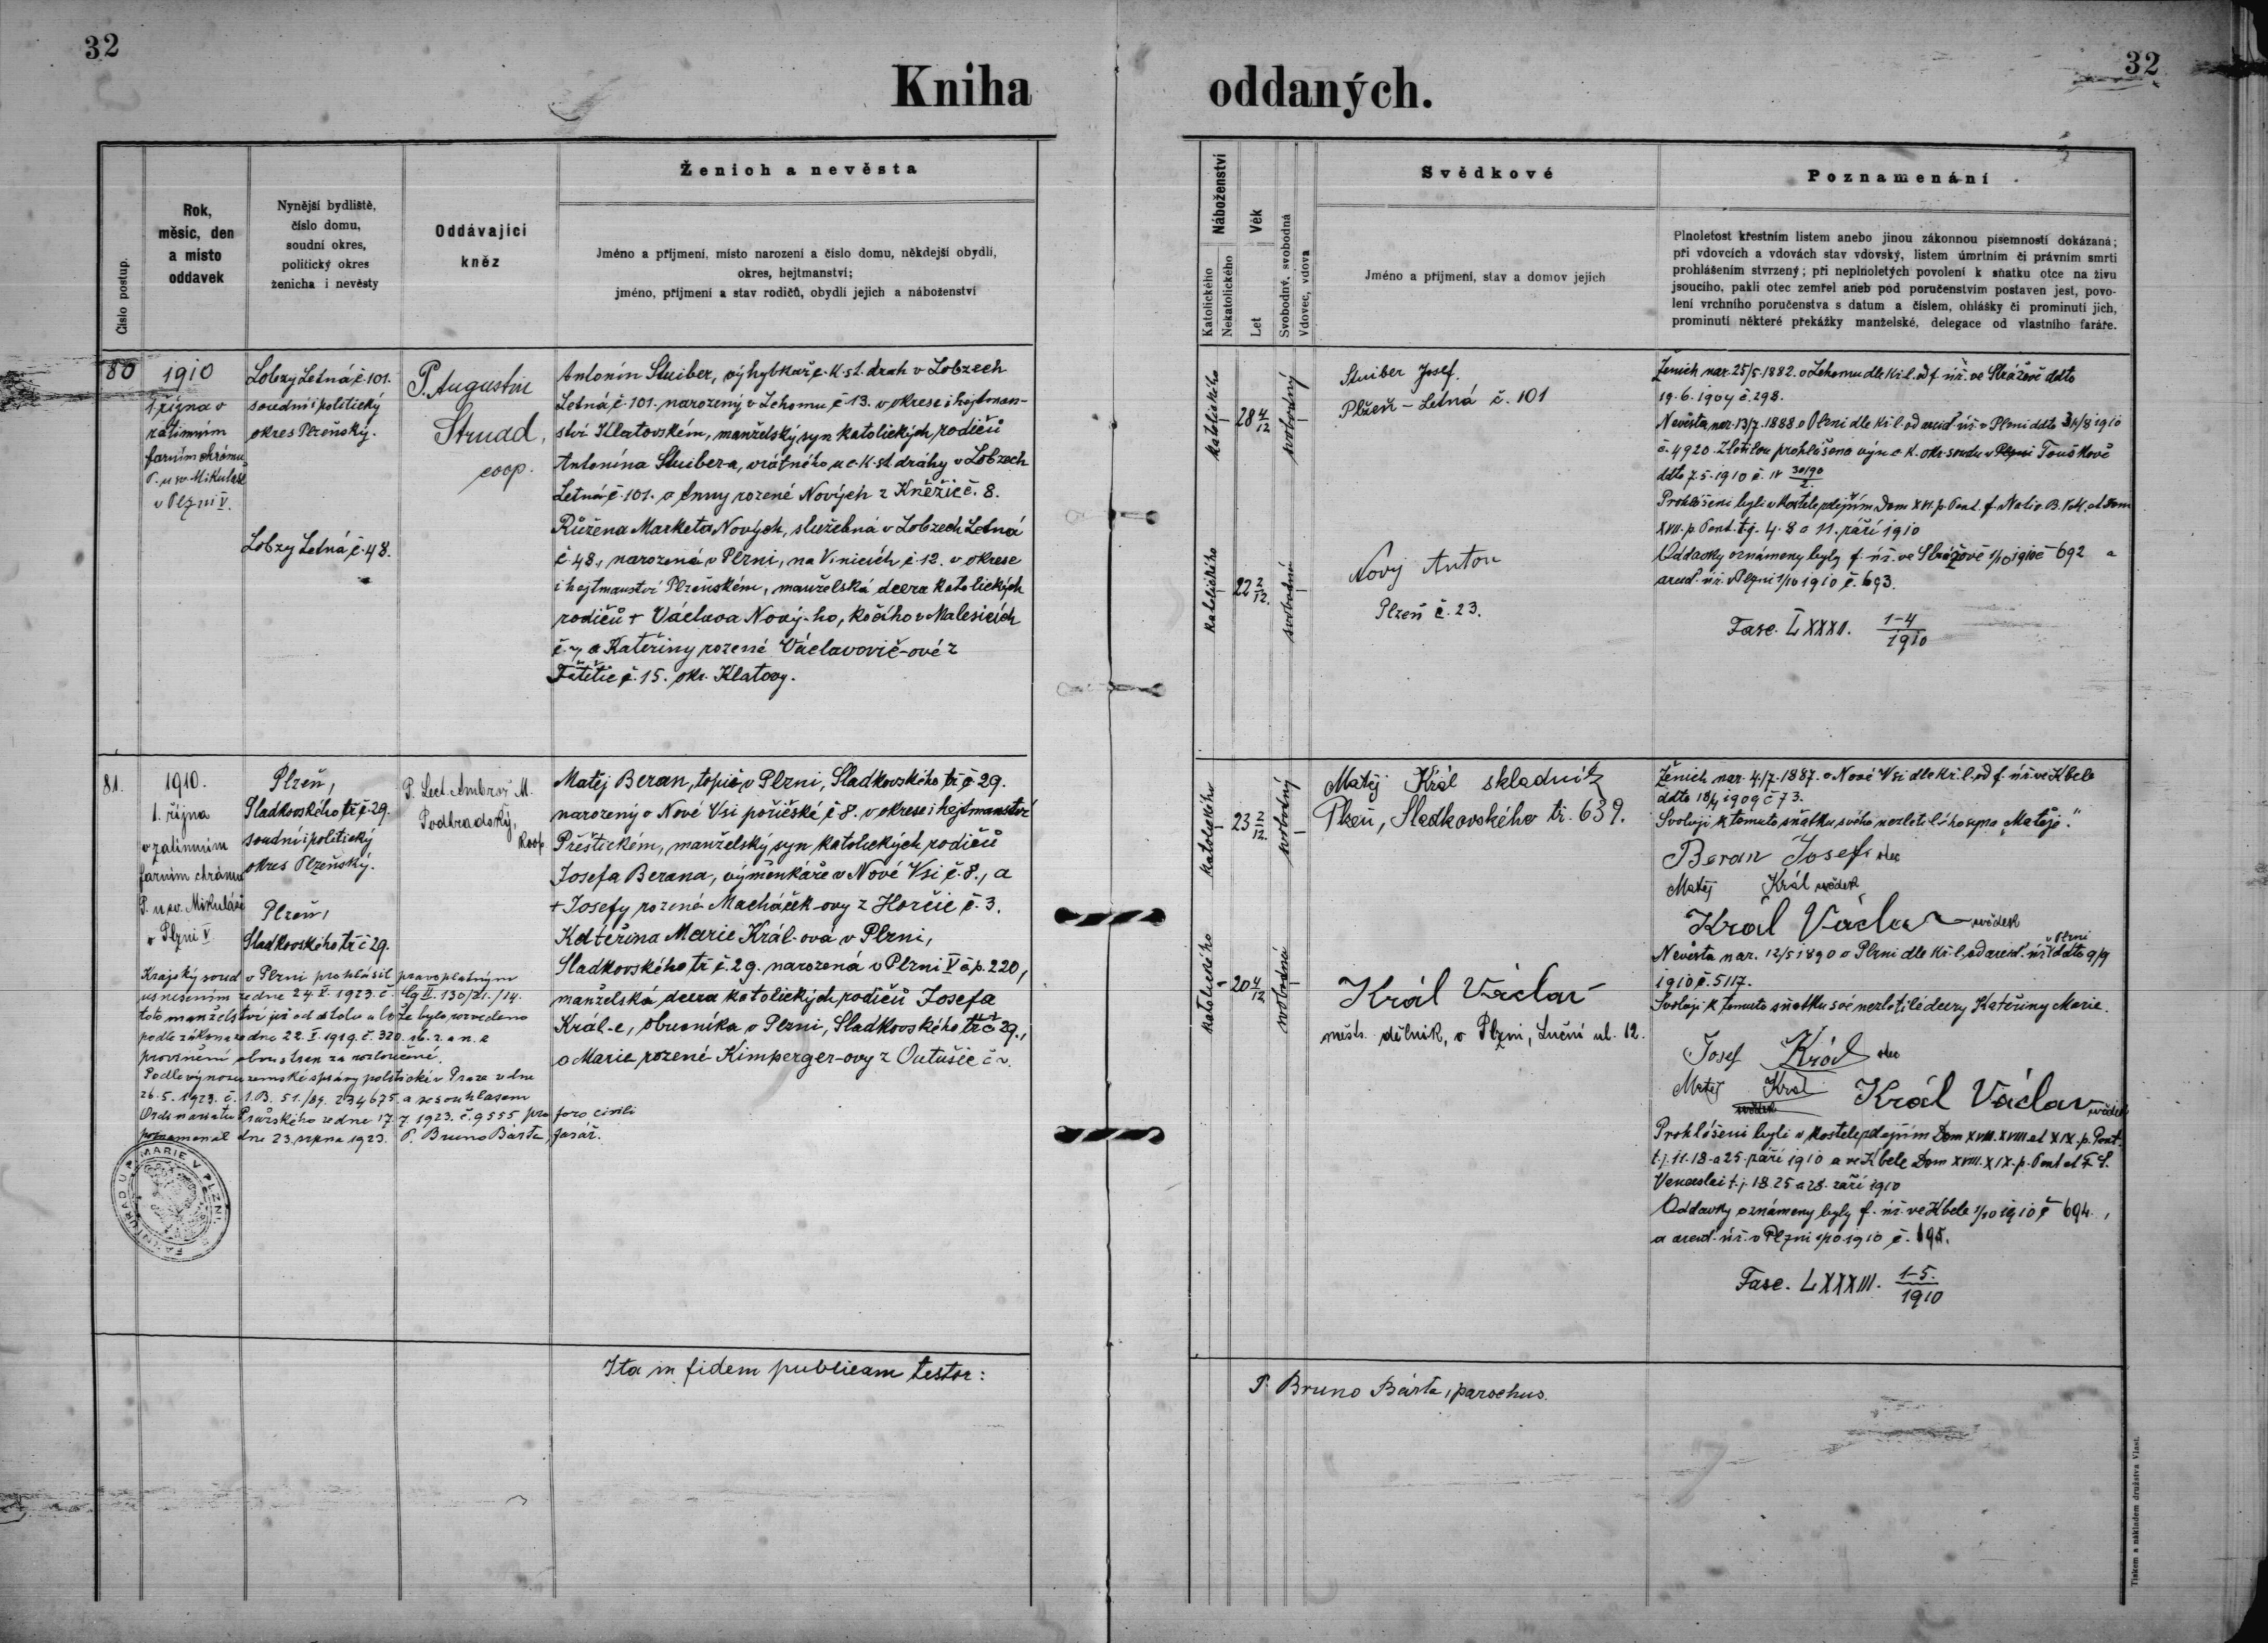 32
32
Kniha oddaných.
Číslo postup.
Rok,
měsíc, den
a místo
oddavek
Nynější bydliště,
číslo domu,
soudní okres,
politický okres
ženicha i nevěsty
Oddávající
kněz
Ženich a nevěsta
Jméno a příjmení, místo narození a číslo domu, někdejší obydlí,
okres, hejtmanství;
jméno, příjmení a stav rodičů, obydlí jejich a náboženství
Náboženství
Katolického
Nekatolického
Věk
Let
Svobodný, svobodná
Vdovec, vdova
Svědkové
Jméno a příjmení, stav a domov jejich
Poznamenání
Plnoletost křestním listem anebo jinou zákonnou písemností dokázaná;
při vdovcích a vdovách stav vdovský, listem úmrtním či právním smrti
prohlášením stvrzený; při neplnoletých povolení k sňatku otce na živu
jsoucího, pakli otec zemřel aneb pod poručenstvím postaven jest, povo-
lení vrchního poručenstva s datum a číslem, ohlášky či prominutí jich,
prominutí některé překážky manželské, delegace od vlastního faráře.
80
1910
1 října v
zatimním
farním chrámu
P. u sv. Mikuláše
v Plzni V.
Lobzy Letná č. 101.
soudní i politický
okres Plzeňský.
Lobzy Letná č. 48.
P. Augustin
Strudd,
coop.
Antonín Stuiber, výhybkář c. k. st. drah v Lobzech
Letná č. 101. narozený v Lehomu č 13. v okrese i hejtman-
ství Klatovském, manželský syn katolických rodičů
Antonína Stuiber-a, vrátného u c. k. st. dráhy v Lobzech
Letná č. 101. a Anny rozené Nových z Kněžic č. 8.
Růžena Marketa Nových, služebná v Lobzech Letná
č. 48., narozená v Plzni, na Vinicích č. 12. v okrese
i hejtmanství Plzeňském, manželská dcera katolických
rodičů + Václava Nový-ho, kočího v Malesicích
č. 7 a Kateřiny rozené Václavovič-ové z
Fětětic č. 15. okr. Klatovy.
katolického
28 4/12
svobodný
katolického
22 2/12.
svobodná
Stuiber Josef.
Plzeň - Létná č. 101
Nový Anton
Plzeň č. 23.
Ženich nar. 25/5. 1882. v Lehomu dle kř. l. od f. úř. ve Strážově ddto
19. 6. 1904 č. 298.
Nevěsta nar. 13/7. 1888. v Plzni dle kř. l. od arcid. úř. v Plzni ddto 31/8 1910
č. 4920. Zletilou prohlášena výn. c. k. okr. soudu v Plzni Touškově
ddto 7. 5. 1910 č. 30/90
Prohlášeni byli v kostele zdejším Dom XVI. p. Pent. f. Nativ. B. V. M. et Dom
XVII. p. Pent. t. j. 4. 8 a 11. září 1910
Oddavky oznámeny byly f. úř. ve Strážově 1/10 1910 č 692 a
arcid. úř. v Plzni 1/10 1910 č. 693.
Fasc. LXXXII. 1-4/1910
81.
1910.
1. října
v zatimním
farním chrámu
P. u sv. Mikuláše
v Plzni V
Plzeň,
Sladkovského tř. č 29.
soudní i politický
okres Plzeňský.
Plzeň,
Sladkovského tř. č 29.
P. Lect. Ambrož M.
Podhradský,
koop.
Matěj Beran, topič v Plzni, Sladkovského tř. č 29.
narozený v Nové Vsi poříčské č 8. v okrese i hejtmanství
Přeštickém, manželský syn katolických rodičů
Josefa Berana, výměnkáře v Nové Vsi č. 8., a
+ Josefy rozené Macháček-ovy z Horčic č. 3.
Kateřina Marie Král-ová v Plzni,
Sladkovského tř. č. 29. narozená v Plzni V čp. 220,
manželská dcera katolických rodičů Josefa
Král-e, obuvníka v Plzni, Sladkovského tř. č 29.,
a Marie rozené Kimperger-ovy z Outušic č
Krajský soud v Plzni prohlásil pravoplatným
usnesením ze dne 24. V. 1923. č. Cg II. 130/21./14.
toto manželství již od stolu a lože bylo rozvedeno
podle zákona ze dne 22. V. 1919. č. 320. sb. z. a n. z
provinění obou stran za rozloučené.
Podle výnosu zemské správy politické v Praze ze dne
26. 5. 1923. č. 1. B. 51./89. 234675. a se souhlasem
Ordinariatu Pražského ze dne 17. 7. 1923. č. 9555 pro foro civili
poznamenal dne 23. srpna 1923. P. Bruno Bárta, farář.
FARNÍ ÚŘAD U P. MARIE V PLZNI
katolického
23 2/12.
svobodný
katolického
20 4/12
svobodná
Matěj Král skladník
Plzeň, Sladkovského tř. 639.
Král Václav
městs. dělník, v Plzni, Luční ul. 12.
Ženich nar. 4/7. 1887. v Nové Vsi dle kř. l. od f. úř. ve Kbele
ddto 18/4 1909 č 73.
Svoluji k tomuto sňatku svého nezletilého syna „Matěje."
Beran Josef otec
Matěj Král svědek
Král Václav svědek
Nevěsta nar. 12/5 1890 v Plzni dle kř. l. od arcid. úř. v Plzni ddto 9/9
1910 č. 5117.
Svoluji k tomuto sňatku své nezletilé dcery Kateřiny Marie.
Josef Král otec
Matěj Král svědek Král Václav svědek
Prohlášeni byli v kostele zdejším Dom XVII. XVIII. et XIX. p. Pent.
t. j. 11. 18. a 25. září 1910 a ve Kbele Dom XVIII. XIX. p. Pent et F. S.
Venceslai t. j. 18. 25 a 28. září 1910
Oddavky oznámeny byly f. úř. ve Kbele 1/10 1910 č 694.,
a arcid. úř. v Plzni 1/10. 1910 č. 695.
Fasc. LXXXIII. 1-5./1910
Ita in fidem publicam testor:
P. Bruno Bárta, parochus.
Tiskem a nákladem družstva Vlast.